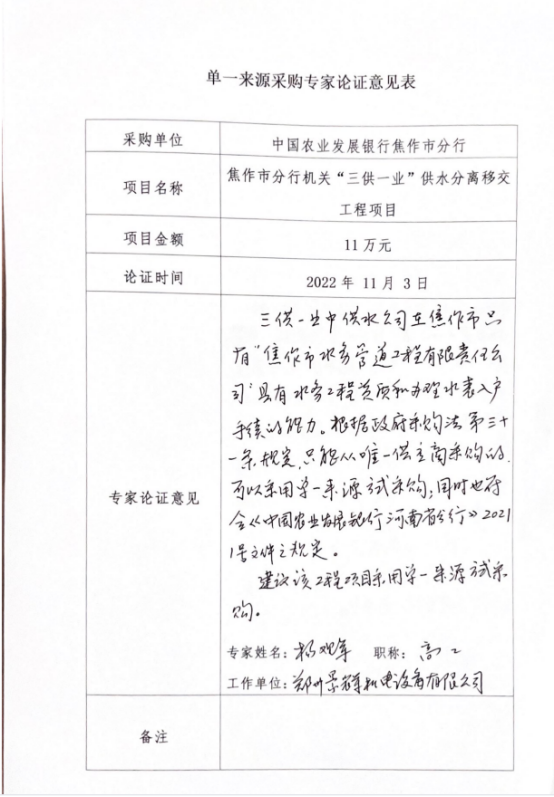 单一来源采购专家论证意见表
采购单位
中国农业发展银行焦作市分行
项目名称
焦作市分行机关“三供一业”供水分离移交
工程项目
项目金额
11万元
论证时间
2022 年 11 月 3 日
专家论证意见
三供一业中供水公司在焦作市只
有“焦作市水务管道工程有限责任公
司”具有水务工程资质和办理水表入户
手续的能力。根据政府采购法第三十
一条规定,只能从唯一供应商采购的,
可以采用单一来源式采购,同时也符
合《中国农业发展银行河南省分行》2021
1号文件之规定。
建议该工程项目采用单一来源式采
购。
专家姓名: 杨 军 职称: 高工
工作单位: 郑州景 机电设备有限公司
备注